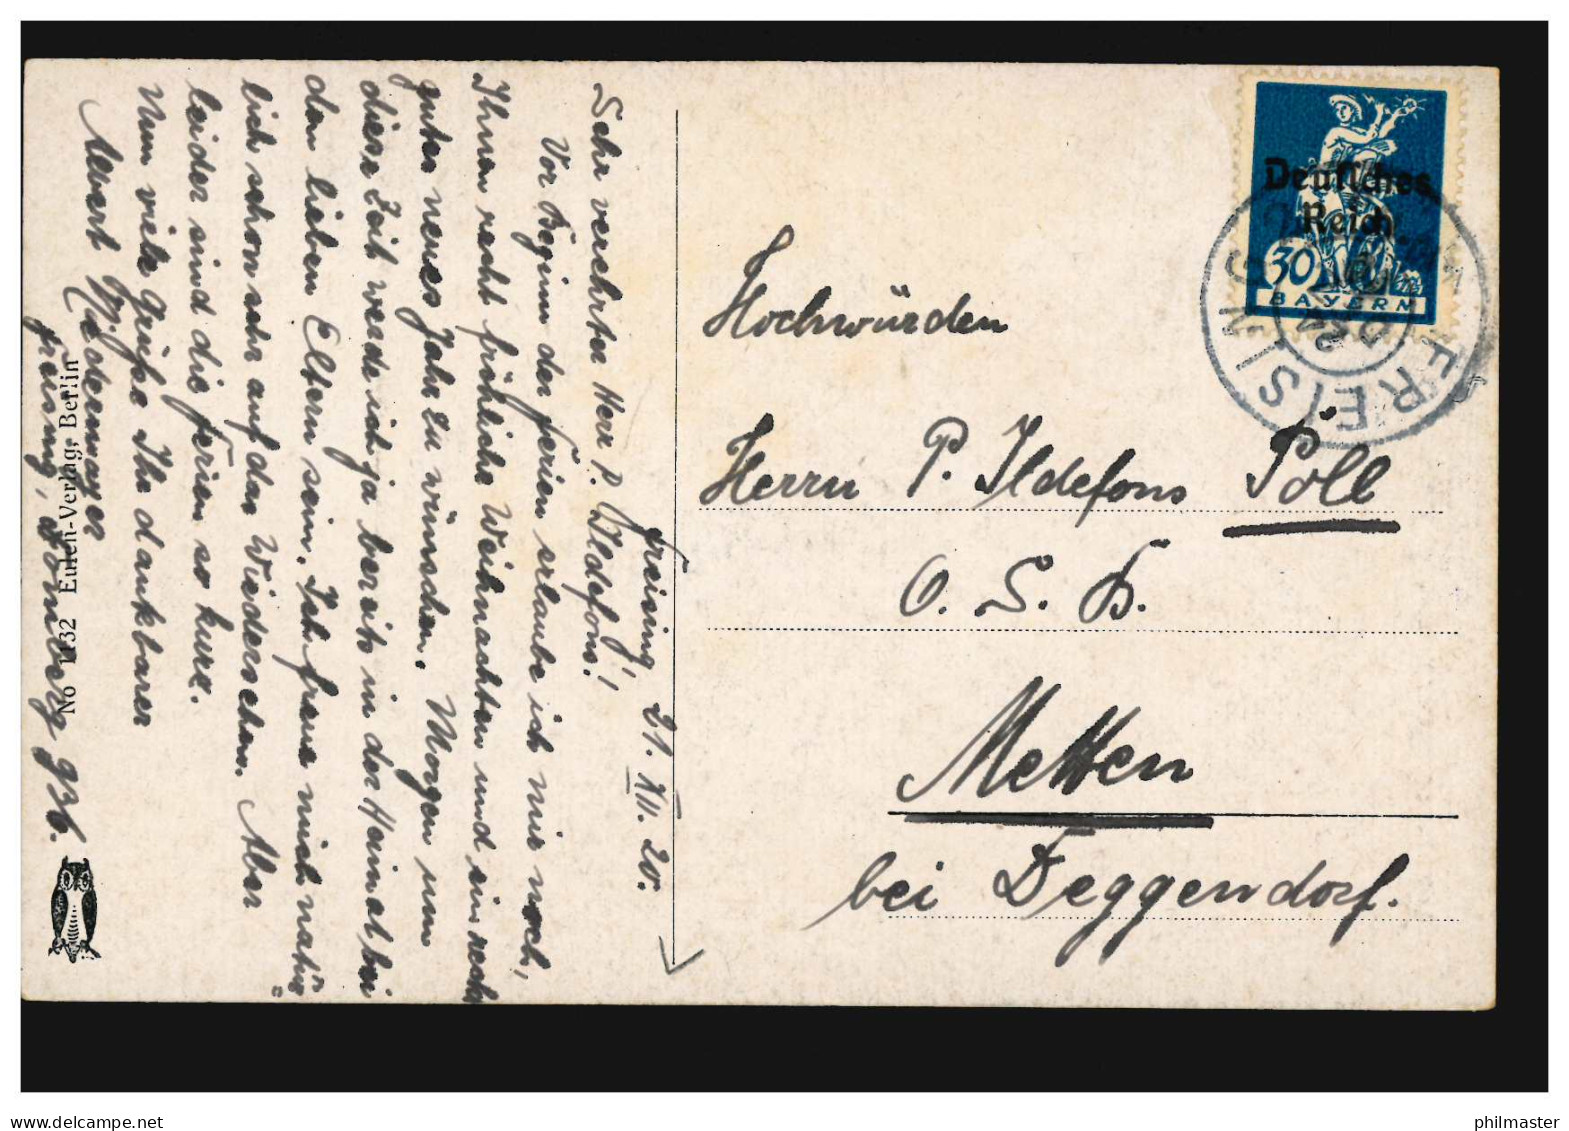 Freising, 21. XII. 20.
Sehr verehrter Herr P. Ildefons!
Vor Beginn der Ferien erlaube ich mir noch,
Ihnen recht fröhliche Weihnachten und ein recht
gutes neues Jahr zu wünschen. Morgen um
diese Zeit werde ich ja bereits in der Heimat bei
den lieben Eltern sein. Ich freue mich natür=
lich schon sehr auf das Wiedersehen. Aber
leider sind die Ferien so kurz.
Nun viele Grüße Ihr dankbarer
Niedermayer
Freising, Domberg
No 1132 Eulen-Verlag, Berlin
Deutsches
Reich
30
BAYERN
FREISING
Hochwürden
Herrn P. Ildefons Poll
O. S. B.
Metten
bei Deggendorf.
philmaster
delcampe.net